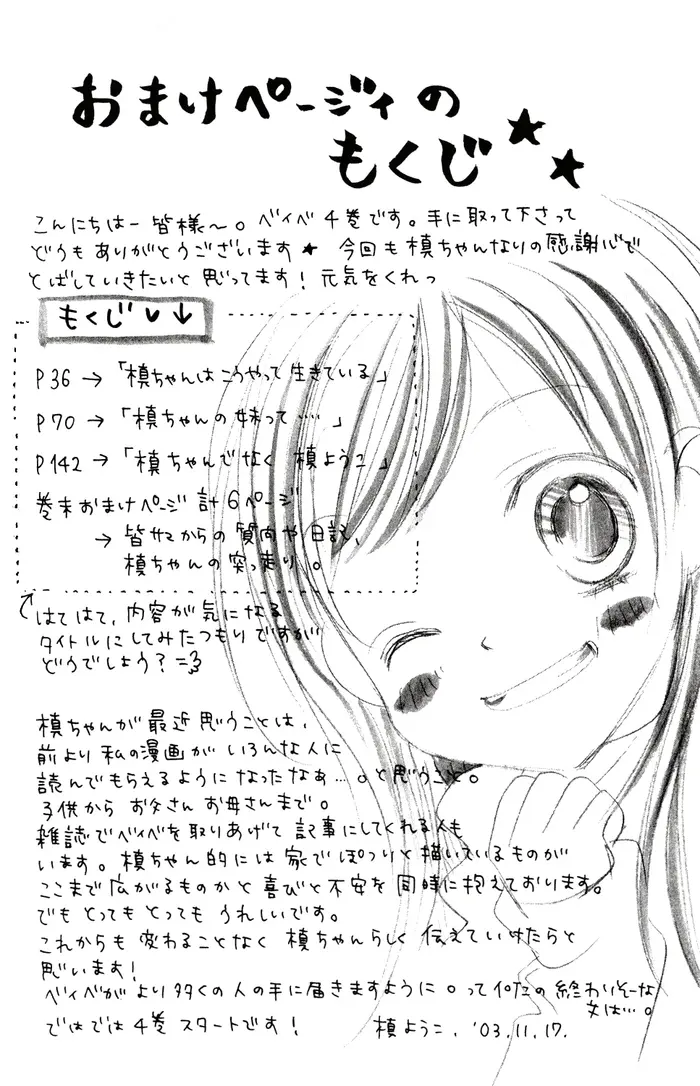 おまけページィの
もくじ★★
こんにちはー皆様〜。ベイベ4巻です。手に取って下さって
どうもありがとうございます★ 今回も槙ちゃんなりの感謝心で
とばしていきたいと思ってます！元気をくれっ
もくじ♥↓
P36→「槙ちゃんはこうやって生きている」
P70→「槙ちゃんの妹って……」
P142→「槙ちゃんでなく 槙ようこ」
巻末おまけページ 計6ページ
→ 皆サマからの質向や日記、
槙ちゃんの突っ走り。
はてはて、内容が気になる
タイトルにしてみたつもりですが
どうでしょう？
槙ちゃんが最近思うことは、
前より私の漫画がいろんな人に
読んでもらえるようになったなぁ…。と思うこと。
子供から お父さん お母さんまで。
雑誌でベイベを取りあげて 記事にしてくれる人も
います。槙ちゃん的には 家でぽつりと描いているものが
ここまで広がるものかと喜びと不安を同時に抱えております。
でも とっても とっても うれしいです。
これからも 変わることなく 槙ちゃんらしく 伝えていけたらと
思います！
ベイベが より多くの人の手に届きますように。って の終わりそーな
文は…。
ではでは4巻 スタートです！ 槙ようこ. '03.11.17.